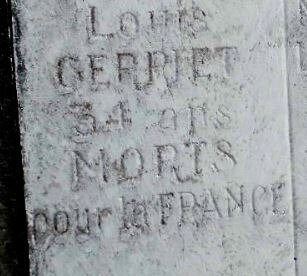 Louis
GERRIET
34 ans
MORTS
pour la FRANCE